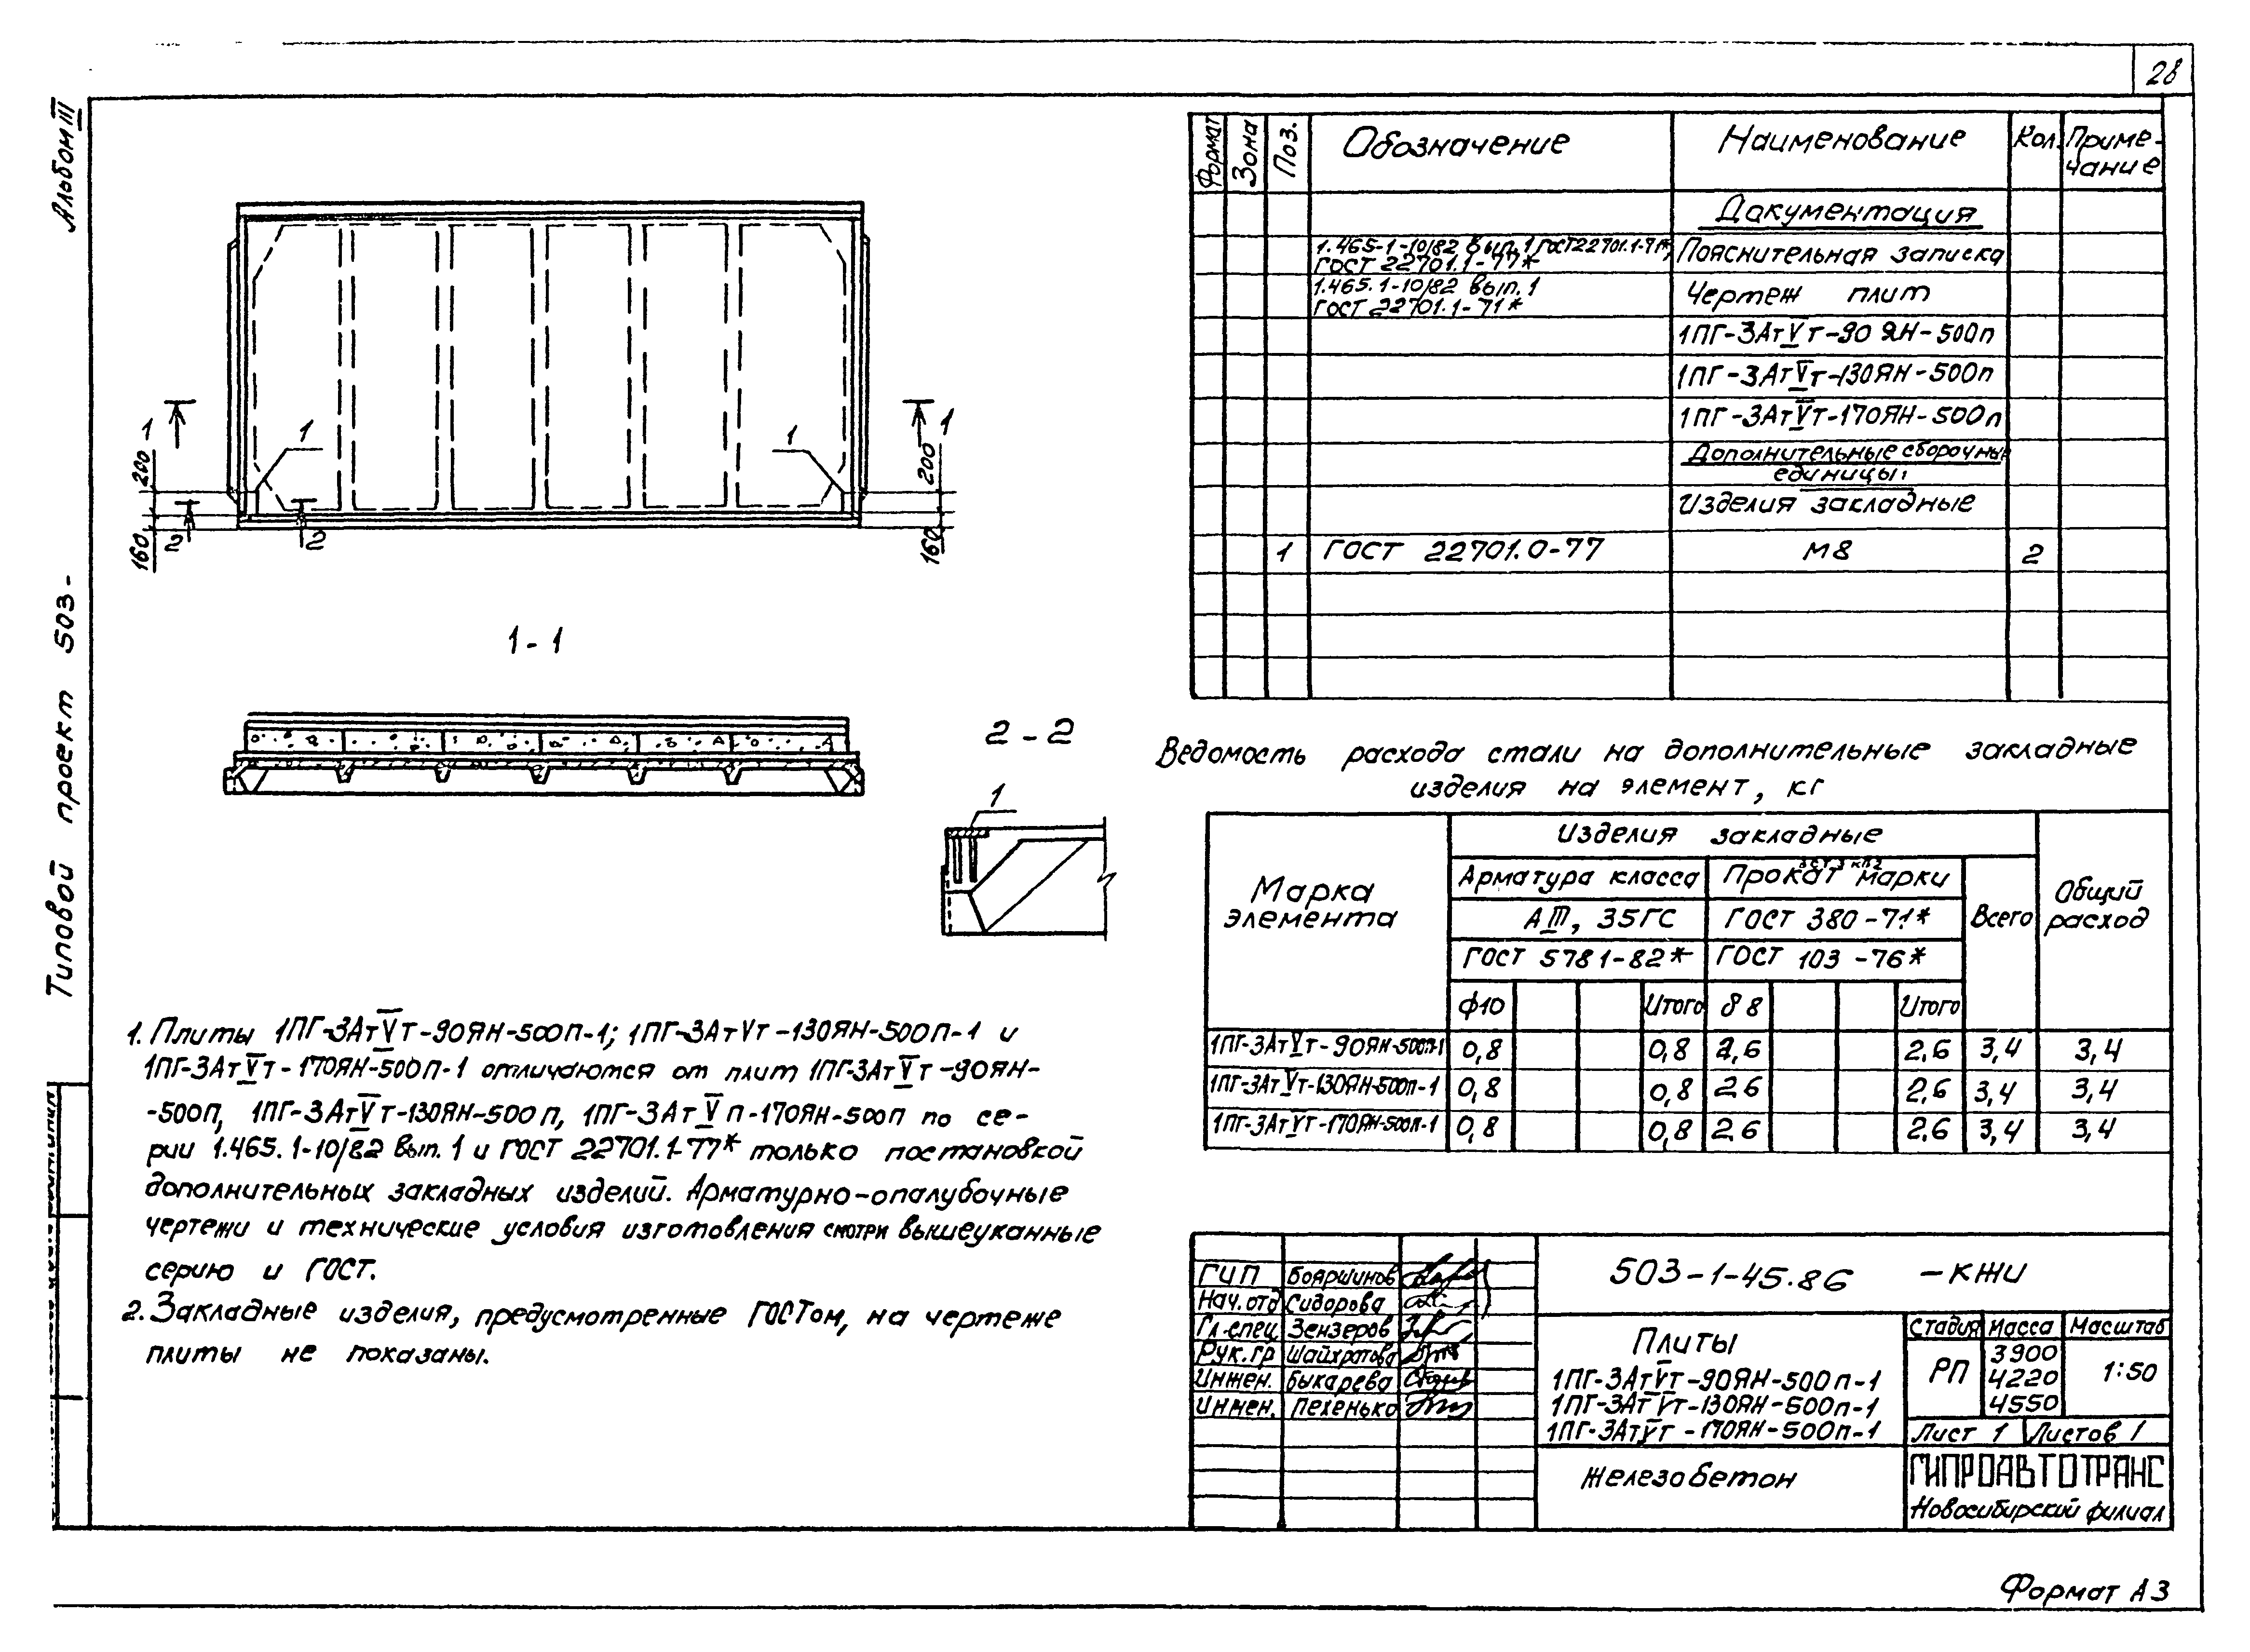 28
Альбом III
Типовой проект 503-
1
1
1
1
200
160
2
2
200
160
1-1
2-2
1
Формат Зона Поз. Обозначение Наименование Кол. Приме-
чание
Дакументация
1.465-1-10/82 вып.1 ГОСТ22701.1-71*, Пояснительная записка
ГОСТ 22701.1-77*
1.465.1-10/82 вып.1 Чертеж плит
ГОСТ 22701.1-71*
1ПГ-3АтVт-90ЯН-500п
1ПГ-3АтVт-130ЯН-500п
1ПГ-3АтVт-170ЯН-500п
Дополнительные сборочные
единицы:
Изделия закладные
1 ГОСТ 22701.0-77 М8 2
Ведомость расхода стали на дополнительные закладные
изделия на элемент, кг
Марка элемента
Изделия закладные
Арматура класса Прокат марки
АIII, 35ГС ГОСТ 380-71* Всего Общий расход
ГОСТ 5781-82* ГОСТ 103-76*
ф10 Итого δ8 Итого
1ПГ-3АтVт-90ЯН-500п-1 0,8 0,8 2,6 2,6 3,4 3,4
1ПГ-3АтVт-130ЯН-500п-1 0,8 0,8 2,6 2,6 3,4 3,4
1ПГ-3АтVт-170ЯН-500п-1 0,8 0,8 2,6 2,6 3,4 3,4
1. Плиты 1ПГ-3АтVт-90ЯН-500П-1; 1ПГ-3АтVт-130ЯН-500П-1 и
1ПГ-3АтVт-170ЯН-500П-1 отличаются от плит 1ПГ-3АтVт-90ЯН-
-500П, 1ПГ-3АтVт-130ЯН-500П, 1ПГ-3АтVп-170ЯН-500п по се-
рии 1.465.1-10/82 вып.1 и ГОСТ 22701.1-77* только постановкой
дополнительных закладных изделий. Арматурно-опалубочные
чертежи и технические условия изготовления смотри вышеуканные
серию и ГОСТ.
2. Закладные изделия, предусмотренные ГОСТом, на чертеже
плиты не показаны.
503-1-45.86 -КЖИ
ГИП Бояршинов
Нач.отд Сидорова
Гл.спец Зензеров
Рук.гр Шайхратова
Инжен. Быкарева
Инжен. Пехенько
Плиты
1ПГ-3АтVт-90ЯН-500п-1
1ПГ-3АтVт-130ЯН-500п-1
1ПГ-3АтVт-170ЯН-500п-1
Стадия Масса Масштаб
РП 3900
4220
4550 1:50
Лист 1 Листов 1
Железобетон
ГИПРОАВТОТРАНС
Новосибирский филиал
Формат А3